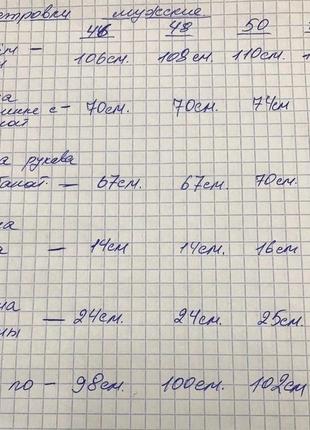 етровки мужские.
46 48 50
106см. 108см. 110см.
70см. 70см. 74см
а рукава
— 67см. 67см. 70см.
— 14см 14см. 16см
— 24см. 24см. 25см.
по — 98см. 100см. 102см